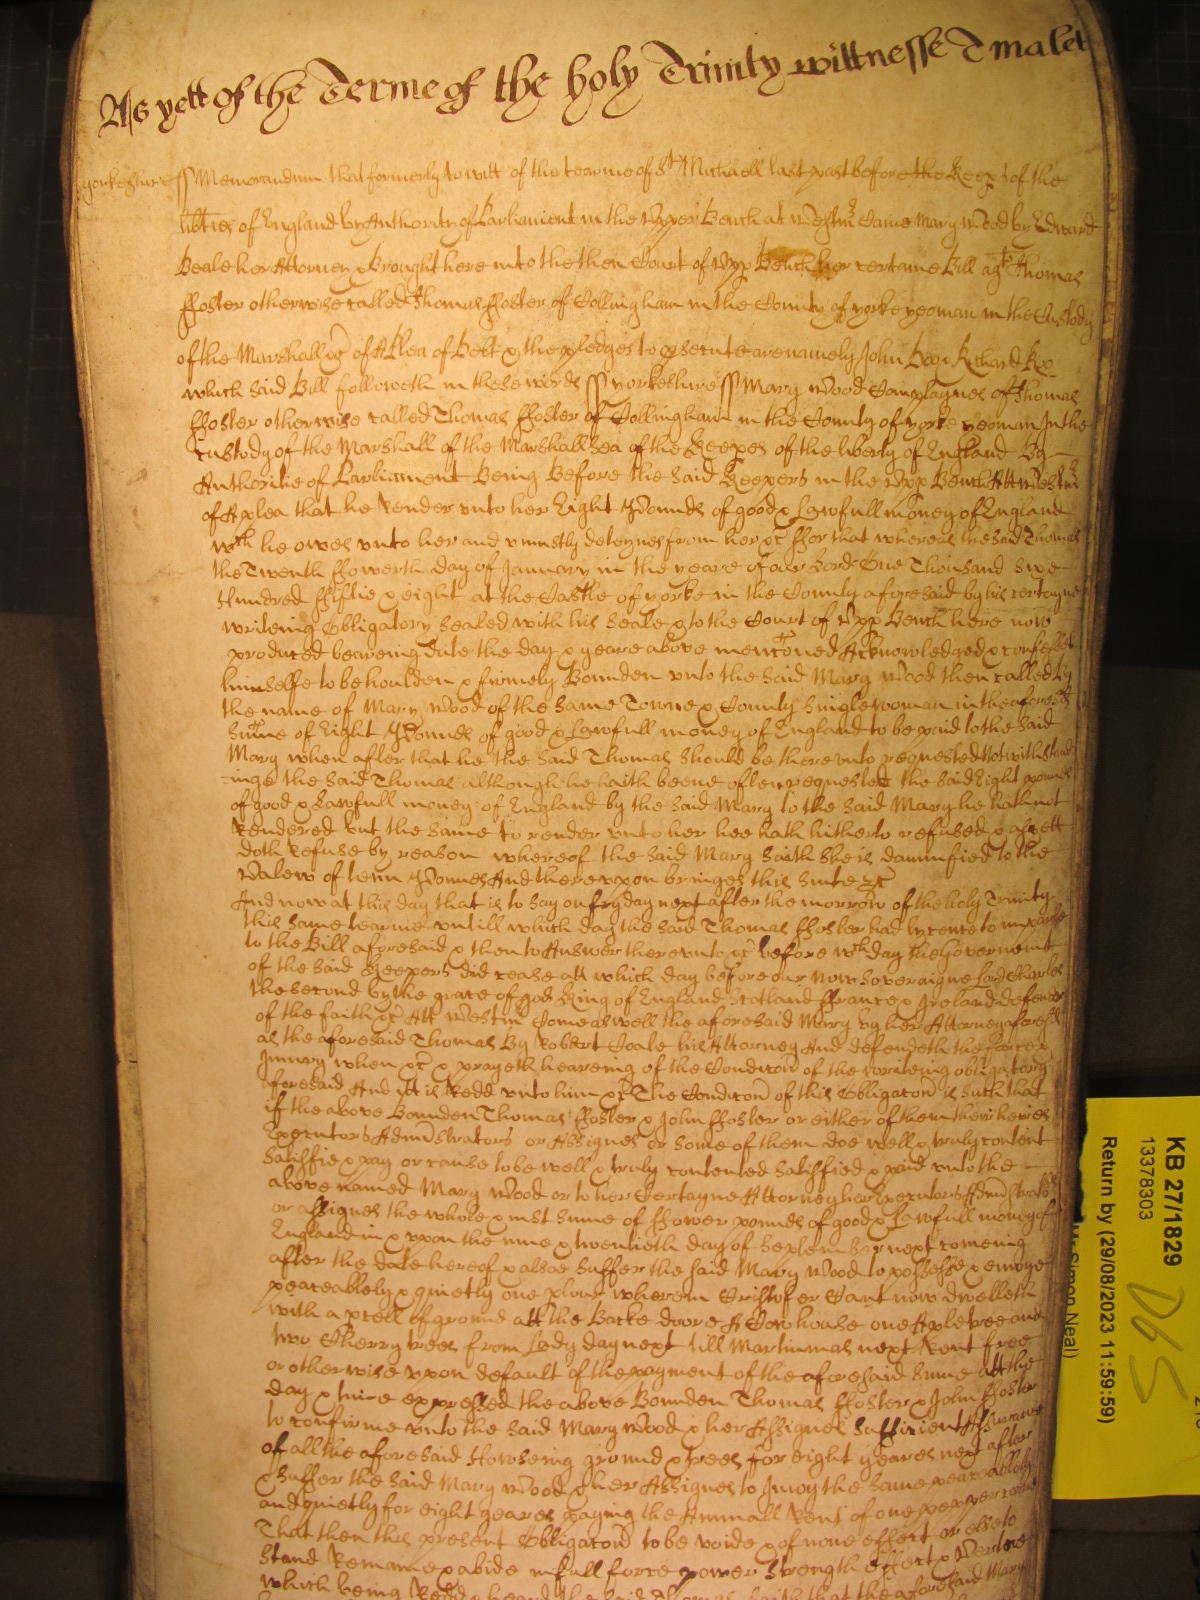 As yett of the Terme of the holy Trinity wittnesse T malet
yorkeshire ss Memorandum that formerly to witt of the tearme of St Michaell last past before the Keep's of the
libties of England by Authority of Parliament in the Upper Bench at Westmr Came Mary Wood by Edward
Beale her Attorney & Brought here into the then Court of Upp Bench her certaine Bill agt Thomas
ffoster otherwise called Thomas ffoster of Collingham in the County of yorke yeoman in the Custody
of the Marshall &c of A Plea of Debt & the pledges to psecute are namely John Doe & Richard Ro
which said Bill followeth in these words ss yorkeshire ss Mary Wood Complaynes of Thomas
ffoster otherwise called Thomas ffoster of Collingham in the County of yorke yeoman In the
custody of the Marshall of the Marshallsea of the Keepers of the liberty of England By
Authoritie of Parliament Being Before the said Keepers in the Upp Bench Att Westmr
of A plea that he Render unto her Eight Pounds of good & Lawfull money of England
wch he owes unto her and uniustly deteynes from her &c ffor that whereas the said Thomas
the Twenth ffowerth day of January in the yeare of our Lord One Thousand Sixe
Hundred ffiftie & eight at the Castle of yorke in the County aforesaid by his certayne
writeing Obligatory sealed with his seale & to the Court of Upp Bench here now
produced beareing date the day & yeare above mentioned Acknowledged & confessed
himselfe to be houlden & firmely Bounden unto the said Mary Wood then called by
the name of Mary Wood of the same Towne & County Singlewoman in the aforesd
Sume of Eight Pounds of good & Lawfull money of England to be payd to the said
Mary when after that he the said Thomas should be thereunto requested Notwithstand
-inge the said Thomas although he haith beene often requested the said Eight pounds
of good & Lawfull money of England by the said Mary to the said Mary he hath not
Rendered but the same to render unto her hee hath hitherto refused & as yett
doth Refuse by reason whereof the said Mary saith she is damnified to the
Valew of tenn Pounds And thereupon bringes this suite &c
And now at this day that is to say on fryday next after the morrow of the holy Trinity
this same tearme untill which day the said Thomas ffoster had lycence to imparle
to the Bill aforesaid & then to Answer thereunto &c before wch day the Goverment
of the said Keepers did cease att which day before our now Soveraigne Lord Charles
the second by the grace of god King of England Scotland ffrance & Ireland defender
of the faith &c Att Westmr Come as well the aforesaid Mary by her Attorney aforesd
as the aforesaid Thomas By Robert Coale his Attorney And defendeth the force &
Iniury when &c & prayeth heareing of the Condicon of the writeing obligatory
aforesaid And it is Redd unto him &c The Condicon of this Obligacon is such that
if the above Bounden Thomas ffoster & John ffoster or either of them their heires
Executors Adminstrators or Assignes or some of them doe well & truly content
Satisfie & pay or cause to be well & truly contented Satisfied & paid unto the
above named Mary Wood or to her Certayne Attorney her Executors Adminstrators
or assignes the whole & iust sume of ffower pounds of good & Lawfull mony of
England in & upon the nine & twentieth day of September next comeing
after the date hereof & alsoe suffer the said Mary Wood to possesse & enioye
peaceablely & quietly one wherein Cristofer Cant now dwelleth
with a pcell of ground att the Backe doore A Cowhouse one Apletree and
two Cherry trees from Lady day next till Martinmas next Rent free
or otherwise upon default of the payment of the aforesaid sume att the
day & time expressed the above Bounden Thomas ffoster & John ffoster
to confirme unto the said Mary Wood & her Assignes sufficient Assurance
of all the aforesaid Howseing ground & trees for eight yeares next after
& suffer the said Mary Wood & her Assignes to Inioy the same peaceablely
and quietly for eight yeares paying the Annuall Rent of one
That then this present Obligacon to be voide & of none effect or else to
stand Remaine & abide in full force power strength effect & Vertue
which being Redd & heard the said Thomas saith that the aforesaid Mary
KB 27/1829
13378303
Return by (29/08/2023 11:59:59)
Simon Neal)
D6S